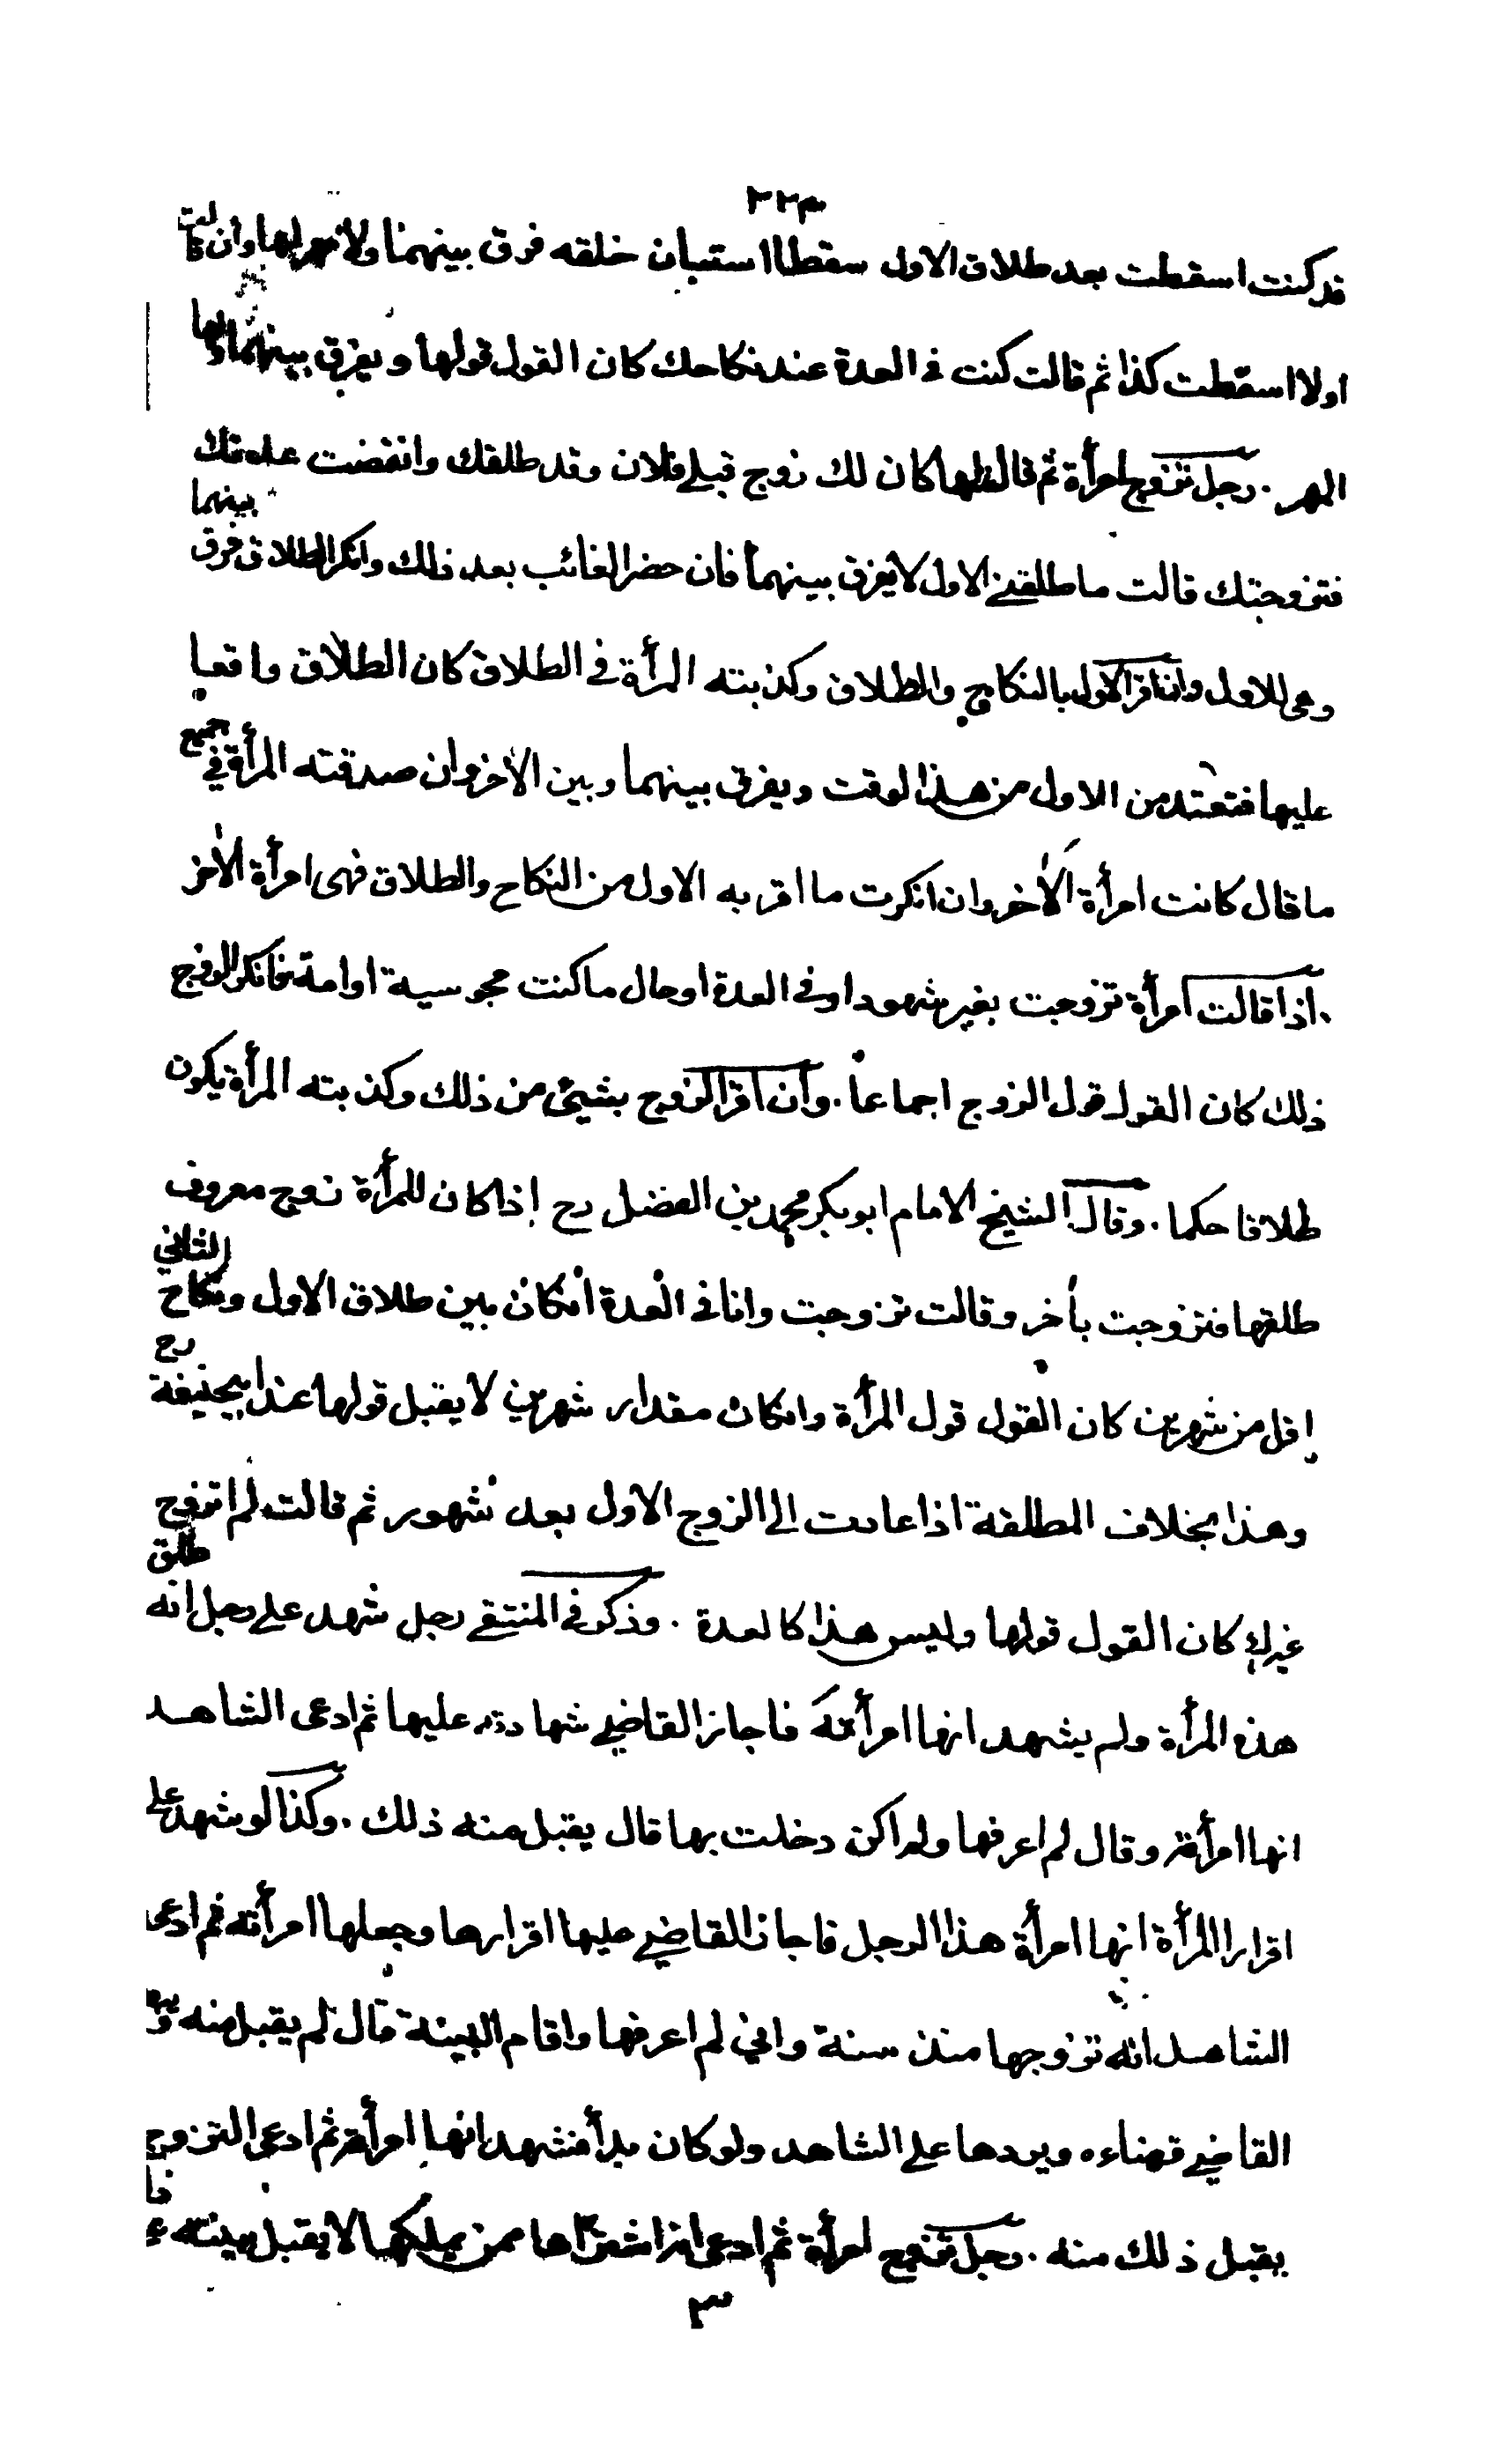 ٢٢٣
قد كنت اسقطت بعد طلاق الاول سقطا استبان خلقه فرق بينهما ولا مهر لها وان كانت
اولا اسقطت كذا ثم قالت كنت فى العدة عند نكاحك كان القول قولها و يفرق بينهما ولها
المهر . رجل تزوج امرأة ثم قال لها كان لك زوج قبلى فلان وقد طلقك وانقضت عدتك
فتزوجتك قالت ما طلقنى الاول لا يفرق بينهما فان حضر الغائب بعد ذلك وانكر الطلاق فرق بينهما
وهى للاول وان اقر الاول بالنكاح والطلاق وكذبته المرأة فى الطلاق كان الطلاق واقعا
عليها فتعتد من الاول من هذا الوقت ويفرق بينهما وبين الأخر وان صدقته المرأة فى جميع
ما قال كانت امرأة الأخر وان انكرت ما اقر به الاول من النكاح والطلاق فهى امرأة الأخر
. اذا قالت امرأة تزوجت بغير شهود او فى العدة او حال ما كنت مجوسية او امة فانكر الزوج
ذلك كان القول قول الزوج اجماعا . وان اقر الزوج بشيئ من ذلك وكذبته المرأة يكون
طلاقا حكما . وقال الشيخ الامام ابو بكر محمد بن الفضل رح إذا كان للمرأة زوج معروف
طلقها فتزوجت بأخر وقالت تزوجت وانا فى العدة ان كان بين طلاق الاول ونكاح الثانى
اقل من شهرين كان القول قول المرأة وان كان مقدار شهرين لا يقبل قولها عند ابيحنيفة رح
وهذا بخلاف المطلقة اذا عادت الى الزوج الاول بعد شهور ثم قالت لم اتزوج
غيرك كان القول قولها وليس هذا كالعدة . وذكر فى المنتقى رجل شهد على رجل انه طلق
هذه المرأة ولم يشهد انها امرأته فاجاز القاضى شهادته عليها ثم ادعى الشاهد
انها امرأته وقال لم اعرفها ولم اكن دخلت بها قال يقبل منه ذلك . وكذا لو شهد على
اقرار المرأة انها امرأة هذا الرجل فاجاز القاضى عليها اقرارها وجعلها امرأته ثم ادعى
الشاهد انه تزوجها منذ سنة وانى لم اعرفها واقام البينة قال لم يقبل منه
القاضى قضاءه ويردها على الشاهد ولو كان بدأ فشهد انها امرأته ثم ادعى التزوج
يقبل ذلك منه . رجل تزوج امرأة ثم ادعى انه اشتراها ممن يملكها لا يقبل بينته
٣